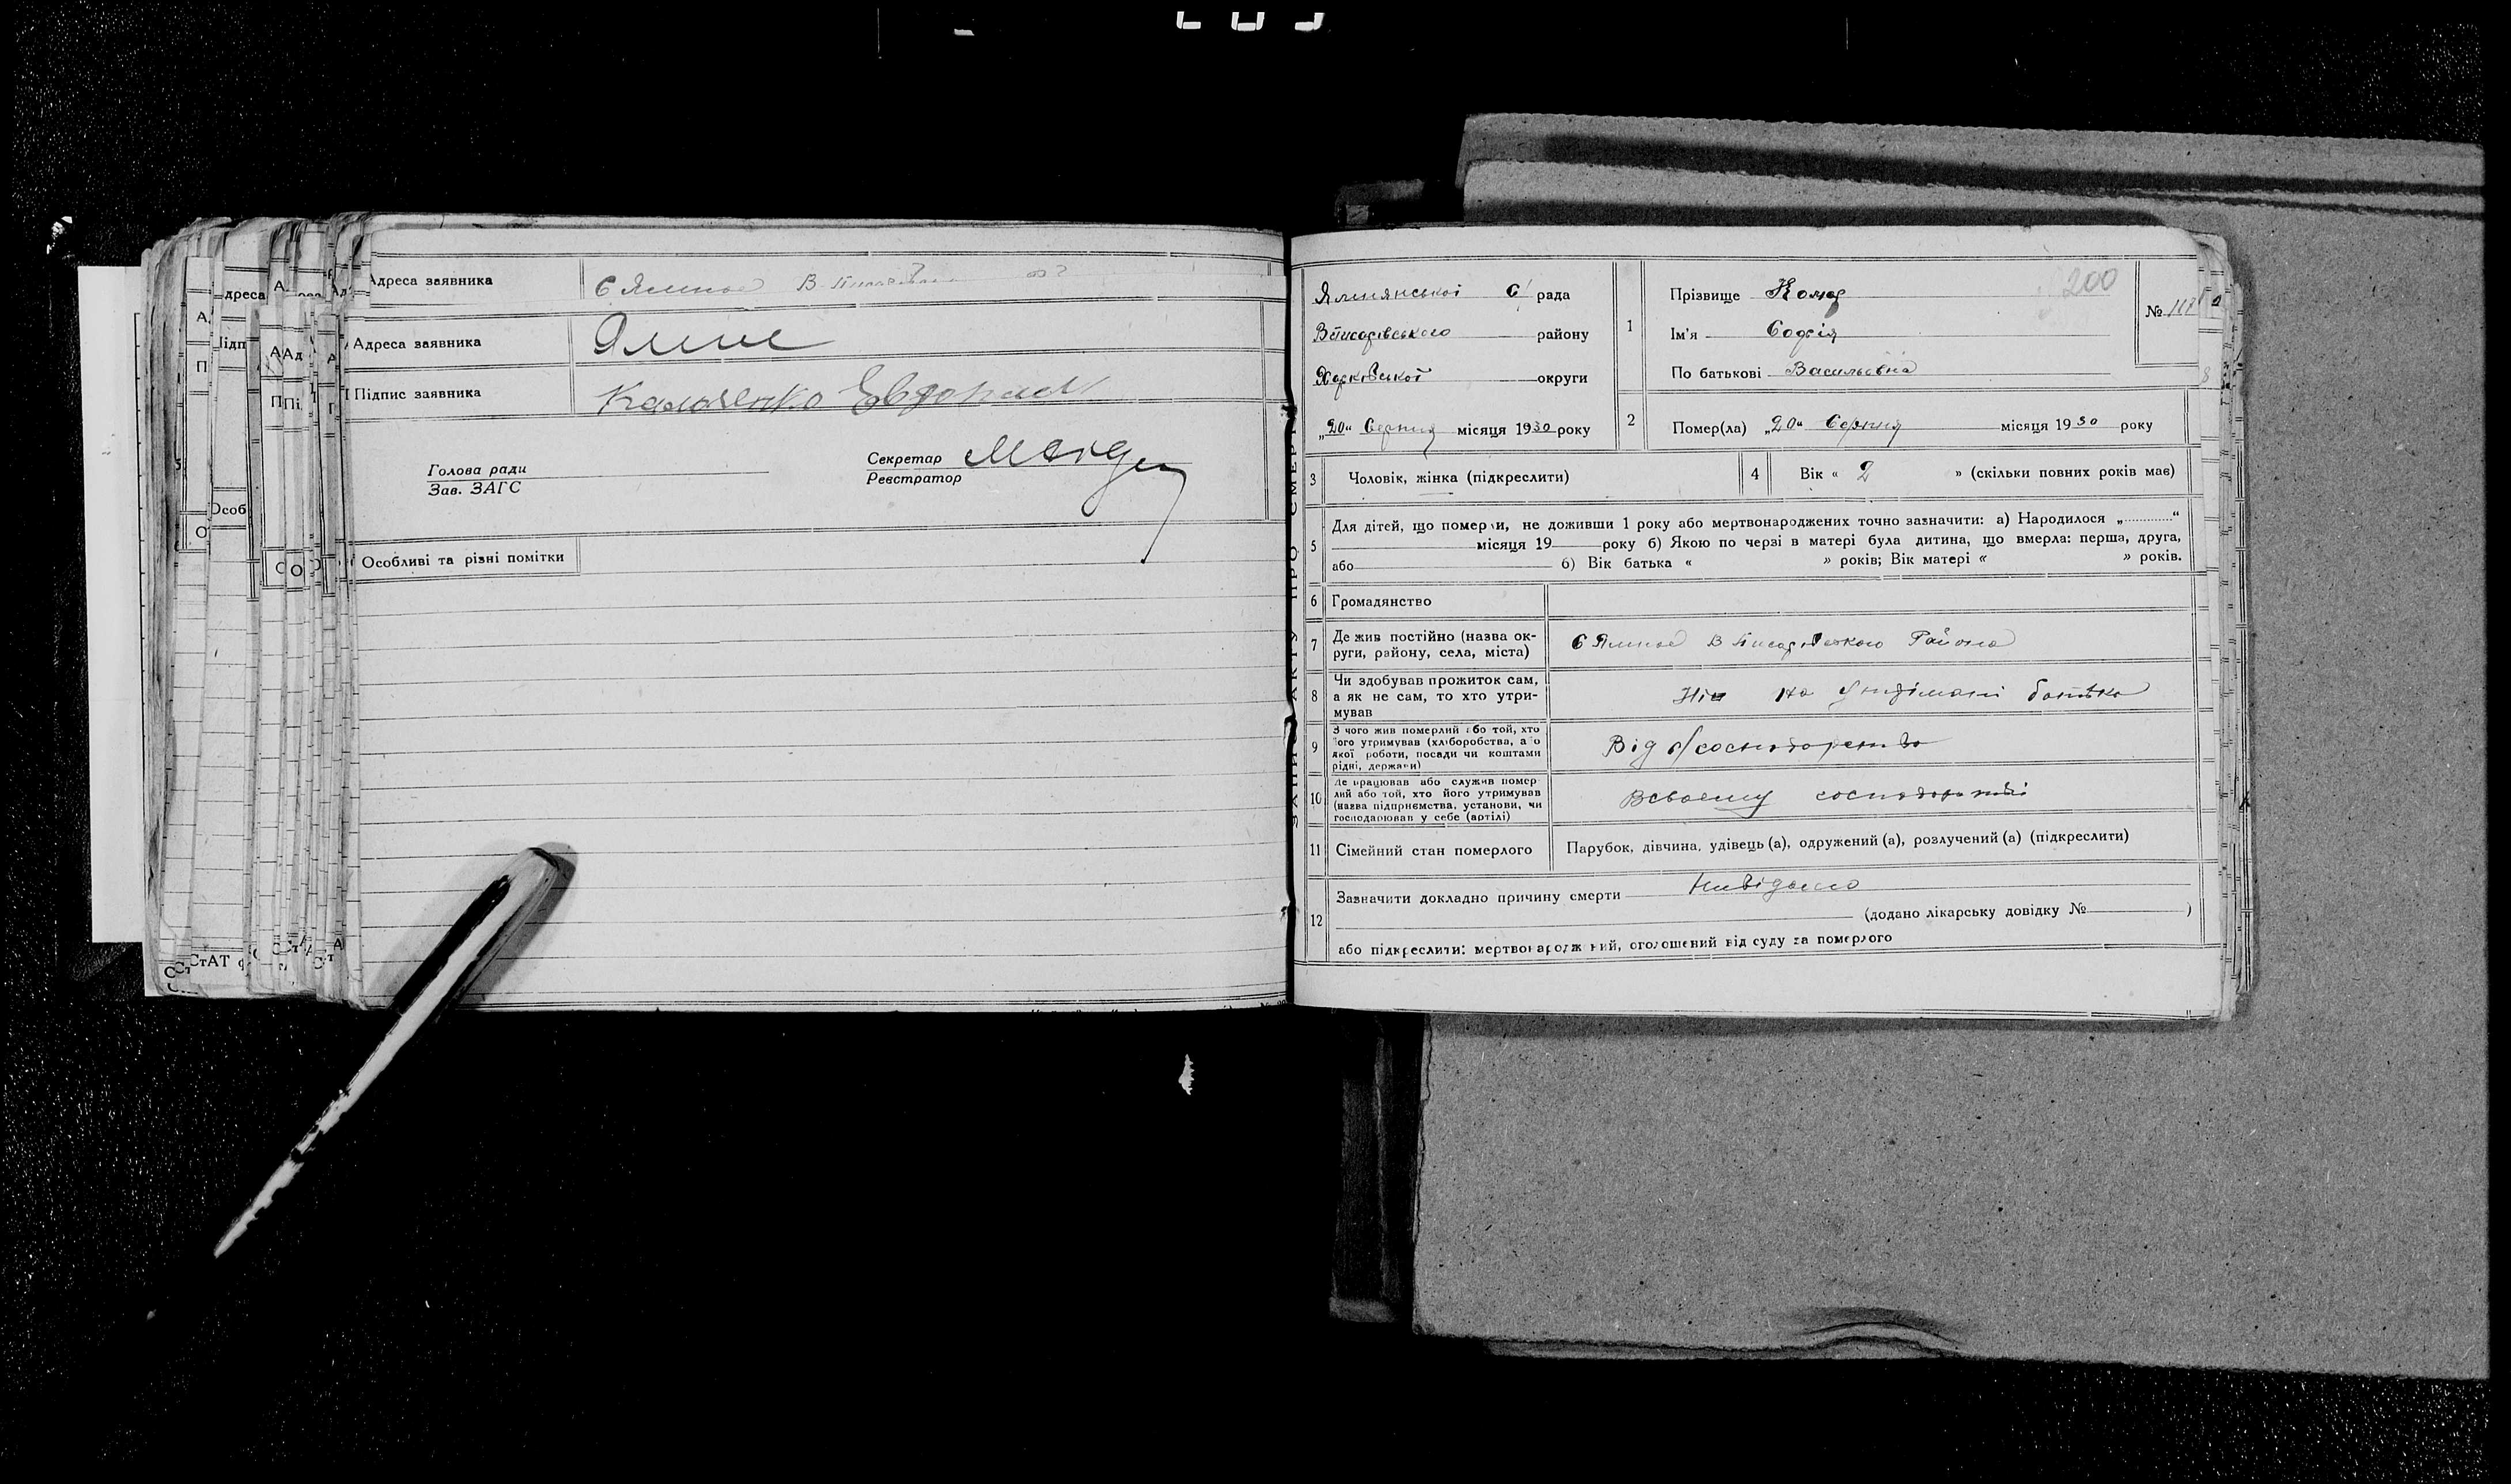 Адреса заявника С Ямное
Адреса заявника Ямне
Підпис заявника
Голова ради
Зав. ЗАГС
Секретар
Реєстратор
Особливі та різні помітки
200
Ямнянської С рада
Вписарівського району
Харківської округи
„20“ Серпня місяця 1930 року
1
Прізвище
Ім'я Софія
По батькові Васильовна
№
2
Помер(ла) „20“ Серпня місяця 1930 року
3 Чоловік, жінка (підкреслити)
4 Вік « 2 » (скільки повних років має)
5
Для дітей, що померли, не доживши 1 року або мертвонароджених точно зазначити: а) Народилося „............“
місяця 19 року б) Якою по черзі в матері була дитина, що вмерла: перша, друга,
або б) Вік батька « » років; Вік матері « » років.
6 Громадянство
7
Де жив постійно (назва ок-
руги, району, села, міста)
С Ямное В Писарівского Району
8
Чи здобував прожиток сам,
а як не сам, то хто утри-
мував
на утрімані батька
9
З чого жив померлий або той, хто
його утримував (хліборобства, або
якої роботи, посади чи коштами
рідні, держави)
Від с/господарства
10
Де працював або служив помер
лий або той, хто його утримував
(назва підприємства, установи, чи
господарював у себе (артілі)
Всвоему господарстві
11 Сімейний стан померлого
Парубок, дівчина, удівець (а), одружений (а), розлучений (а) (підкреслити)
12
Зазначити докладно причину смерти Невідомо
(додано лікарську довідку № )
або підкреслити: мертвонароджений, оголошений від суду за померлого